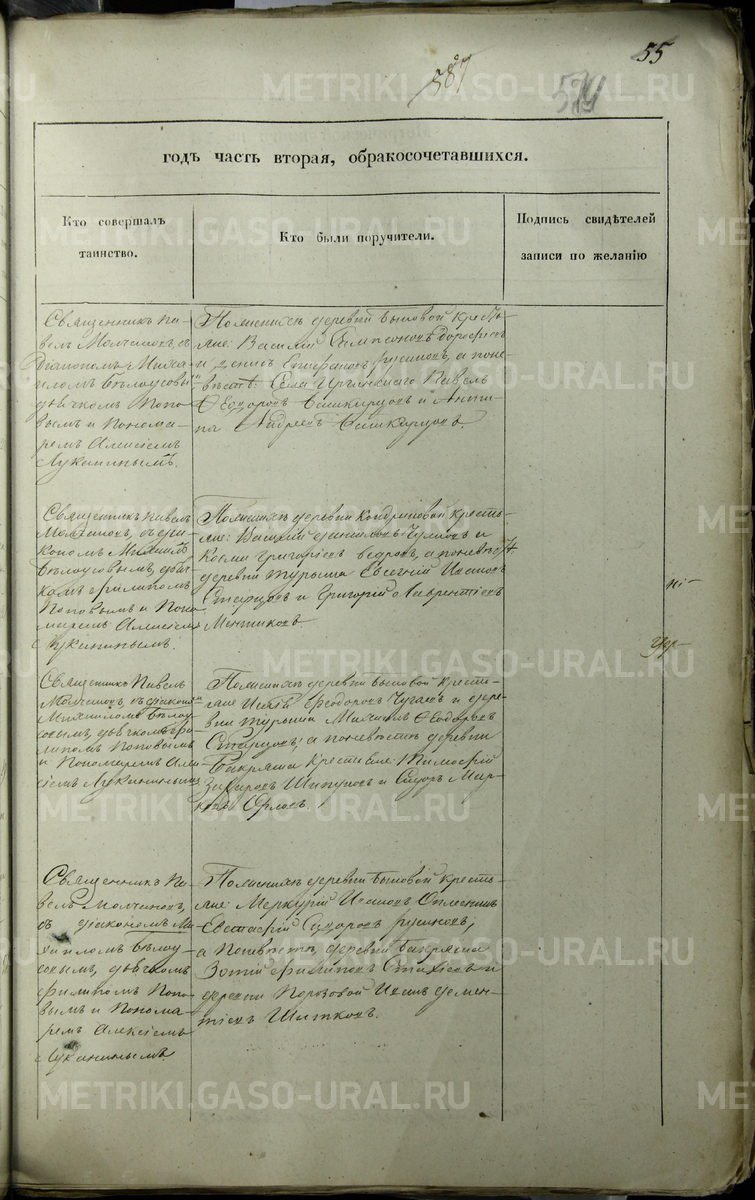 55
587
годъ часть вторая, обракосочетавшихся.
Кто совершалъ
таинство.
Кто были поручители.
Подпись свидѣтелей
записи по желанію
Священникъ Па-
велъ Молчановъ, съ
Діакономъ Миха-
иломъ Бѣлоусовы
дьячкомъ Попо-
вымъ и Понома-
ремъ Алексіемъ
Луканинымъ.
По женихѣ деревни Бысовой кресть-
яне: Василій
и Денисъ Епифановъ Русиновъ, а по не-
вѣстѣ: Села Павелъ
Ѳеодоровъ Башкирцовъ и Анти-
па Андреевъ Башкирцовъ
Священникъ Павелъ
Молчановъ, съ Діа-
кономъ Михаил
Бѣлоусовымъ, дьяч-
комъ Филипомъ
Поповымъ и Поно
маремъ Алексіем
Луканинымъ.
По женихѣ деревни Кресть-
яне:
Косма Григоріевъ а по невѣстѣ
деревни Турыша Евгеній Ивановъ
Старцовъ и Григорій Лаврентіевъ
Меншиковъ.
Священникъ Павелъ
Молчановъ, съ діакон
Михаиломъ Бѣлоу
совымъ, дьячкомъ Фи-
липомъ Поповымъ
и Пономаремъ Але
ксіемъ Луканинымъ
По женихѣ деревни Бысовой Кресть-
яне Ѳеодоровъ Чугаевъ и дере
вни Турыша Михаилъ Ѳеодоровъ
Старцовъ, а по невѣстѣ деревни
Бакряжа Крестьяне Тимоѳей
Захаровъ Шипуновъ и Сидоръ Мар-
ковъ Орловъ.
Священникъ Па-
велъ Молчановъ,
съ діакономъ Ми
хаиломъ Бѣлоу-
совымъ, дьячкомъ
Филипомъ Попо-
вымъ и Понома-
ремъ Алексіемъ
Луканинымъ
По женихѣ деревни Бысовой Кресть-
яне: Меркурій Ивановъ
Евстафій Сидоровъ Русиновъ,
а По невѣстѣ, деревни Бакряжа
Зотій Филиповъ Стахѣевъ и
деревни Порозовой Иванъ Демен-
тіевъ Шитиковъ.
METRIKI.GASO-URAL.RU